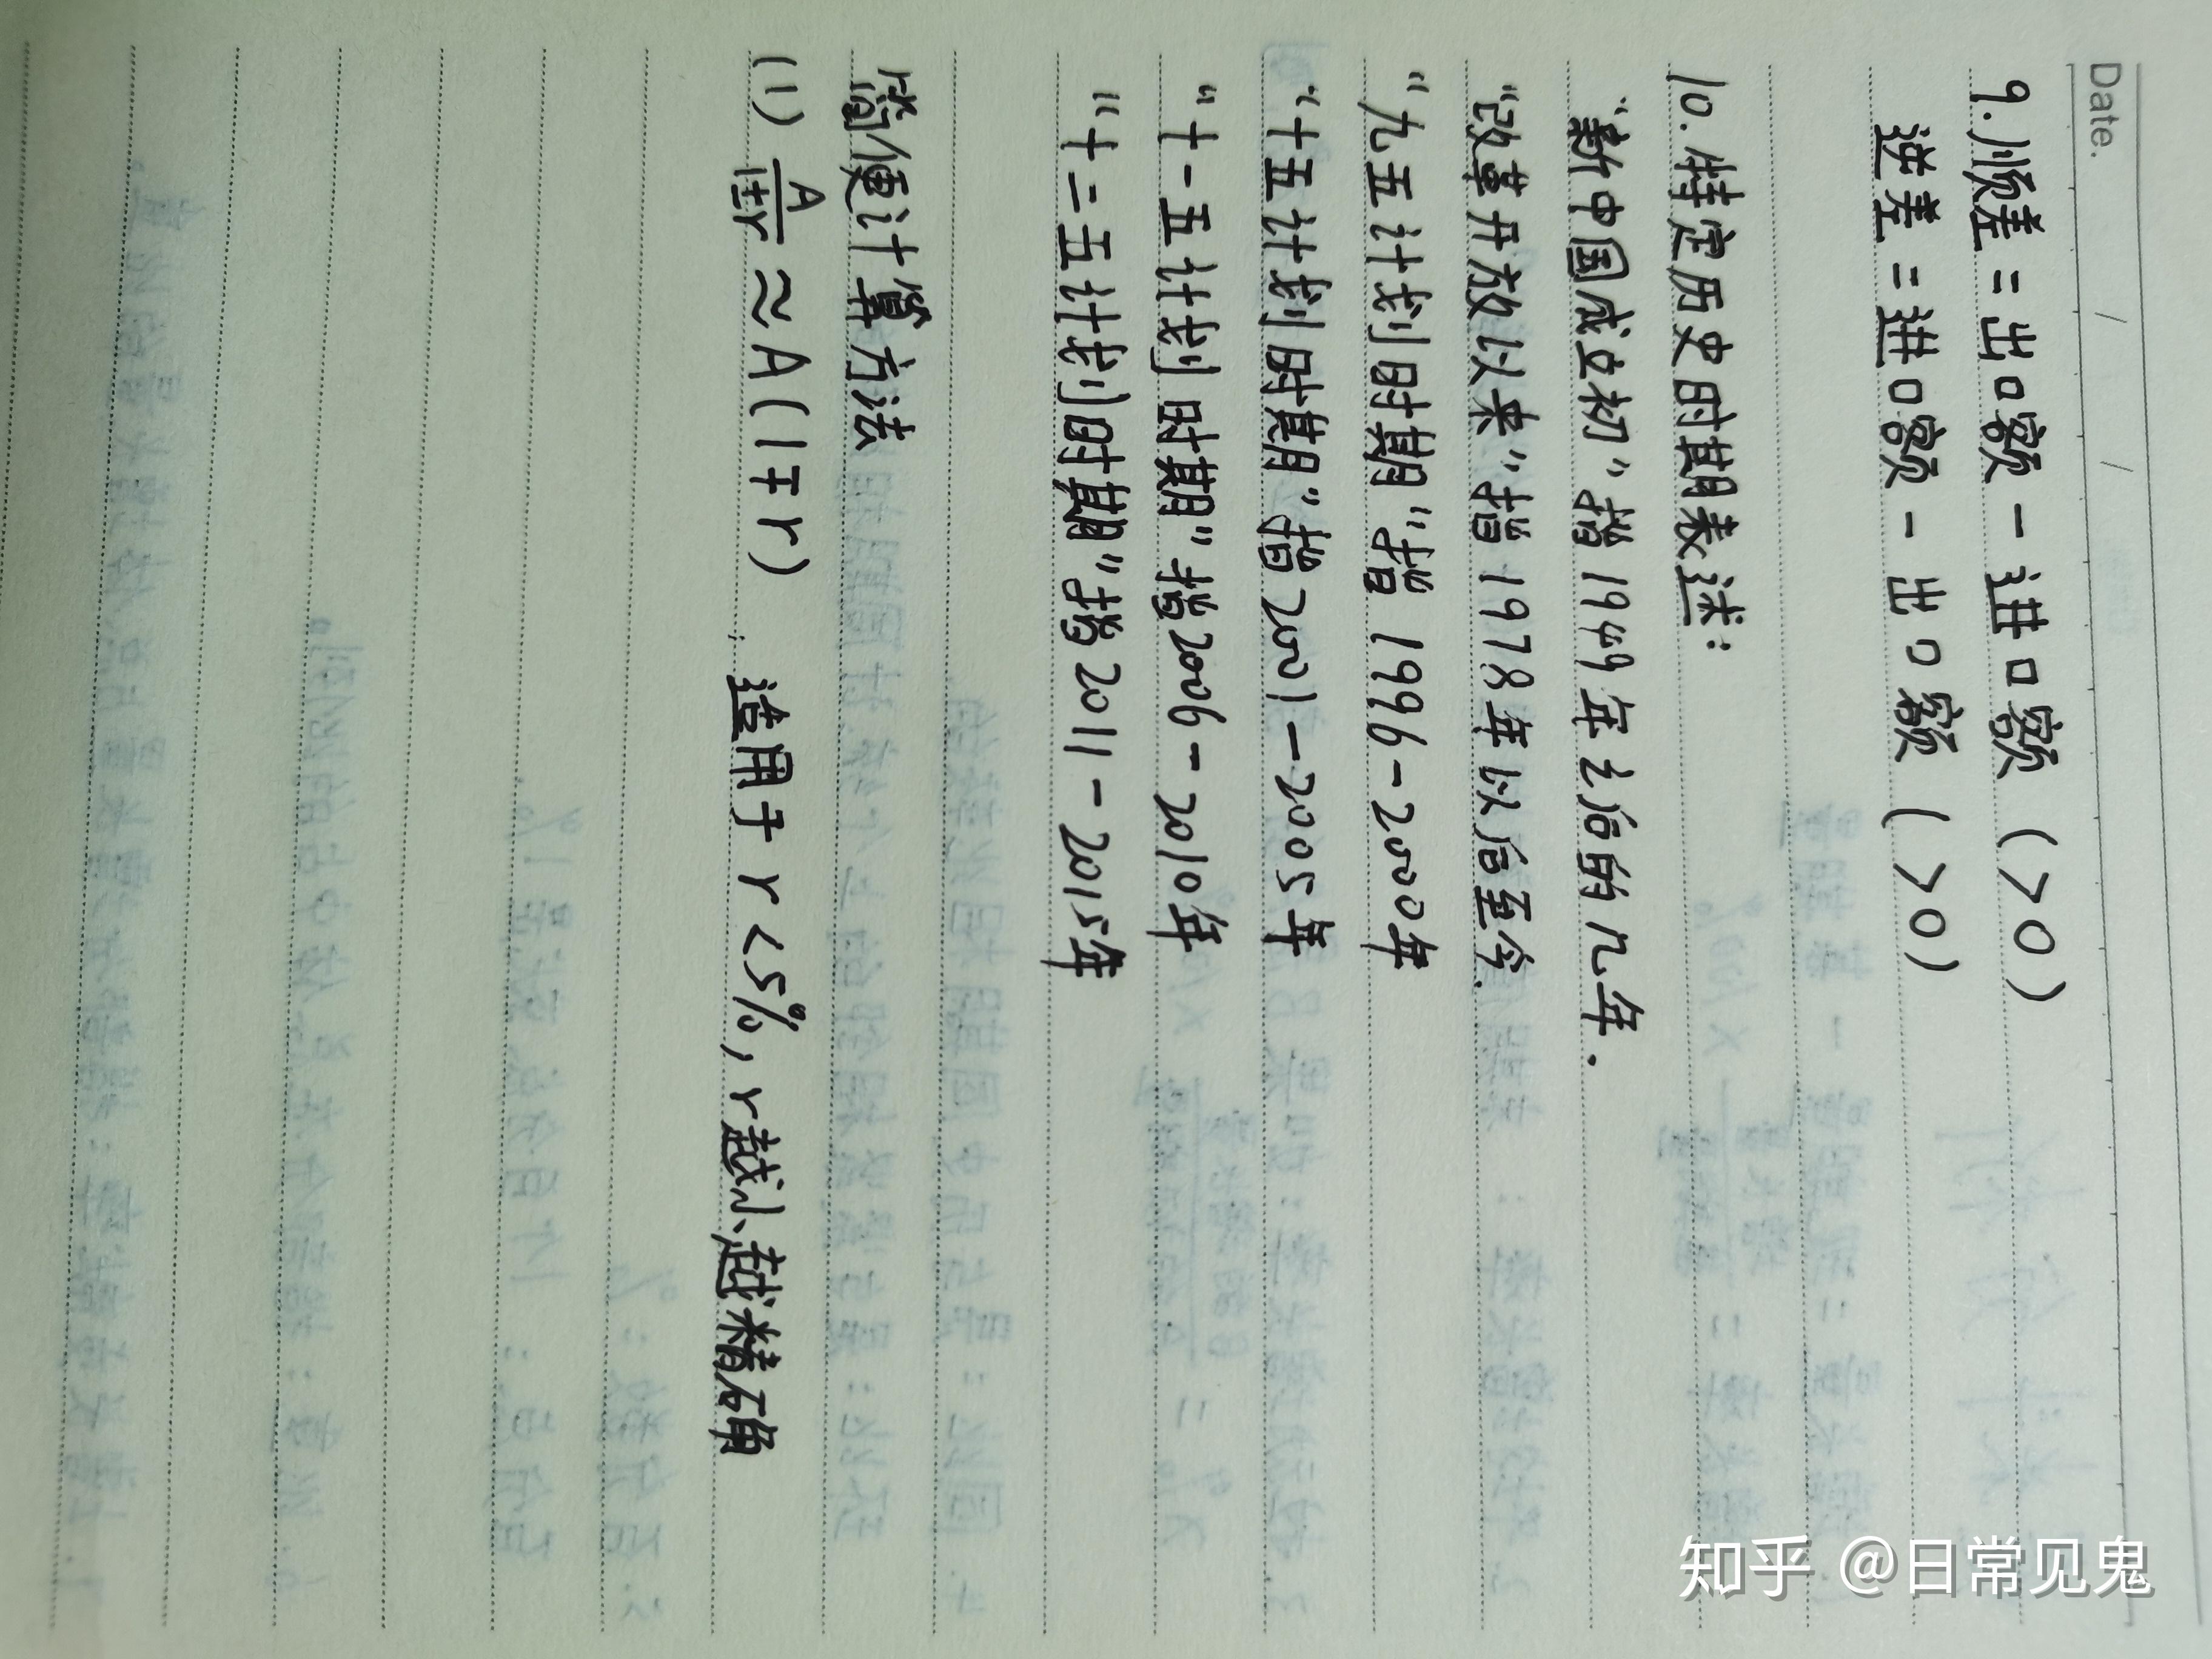 Date. / /
9.顺差=出口额-进口额(>0)
逆差=进口额-出口额(>0)
10.特定历史时期表述:
"新中国成立初"指1949年之后的几年.
"改革开放以来"指1978年以后至今.
"九五计划时期"指1996-2000年
"十五计划时期"指2001-2005年
"十一五计划时期"指2006-2010年
"十二五计划时期"指2011-2015年
简便计算方法
(1) A/1±r ≈ A(1∓r) 适用于r<5%,r越小,越精确
知乎 @日常见鬼